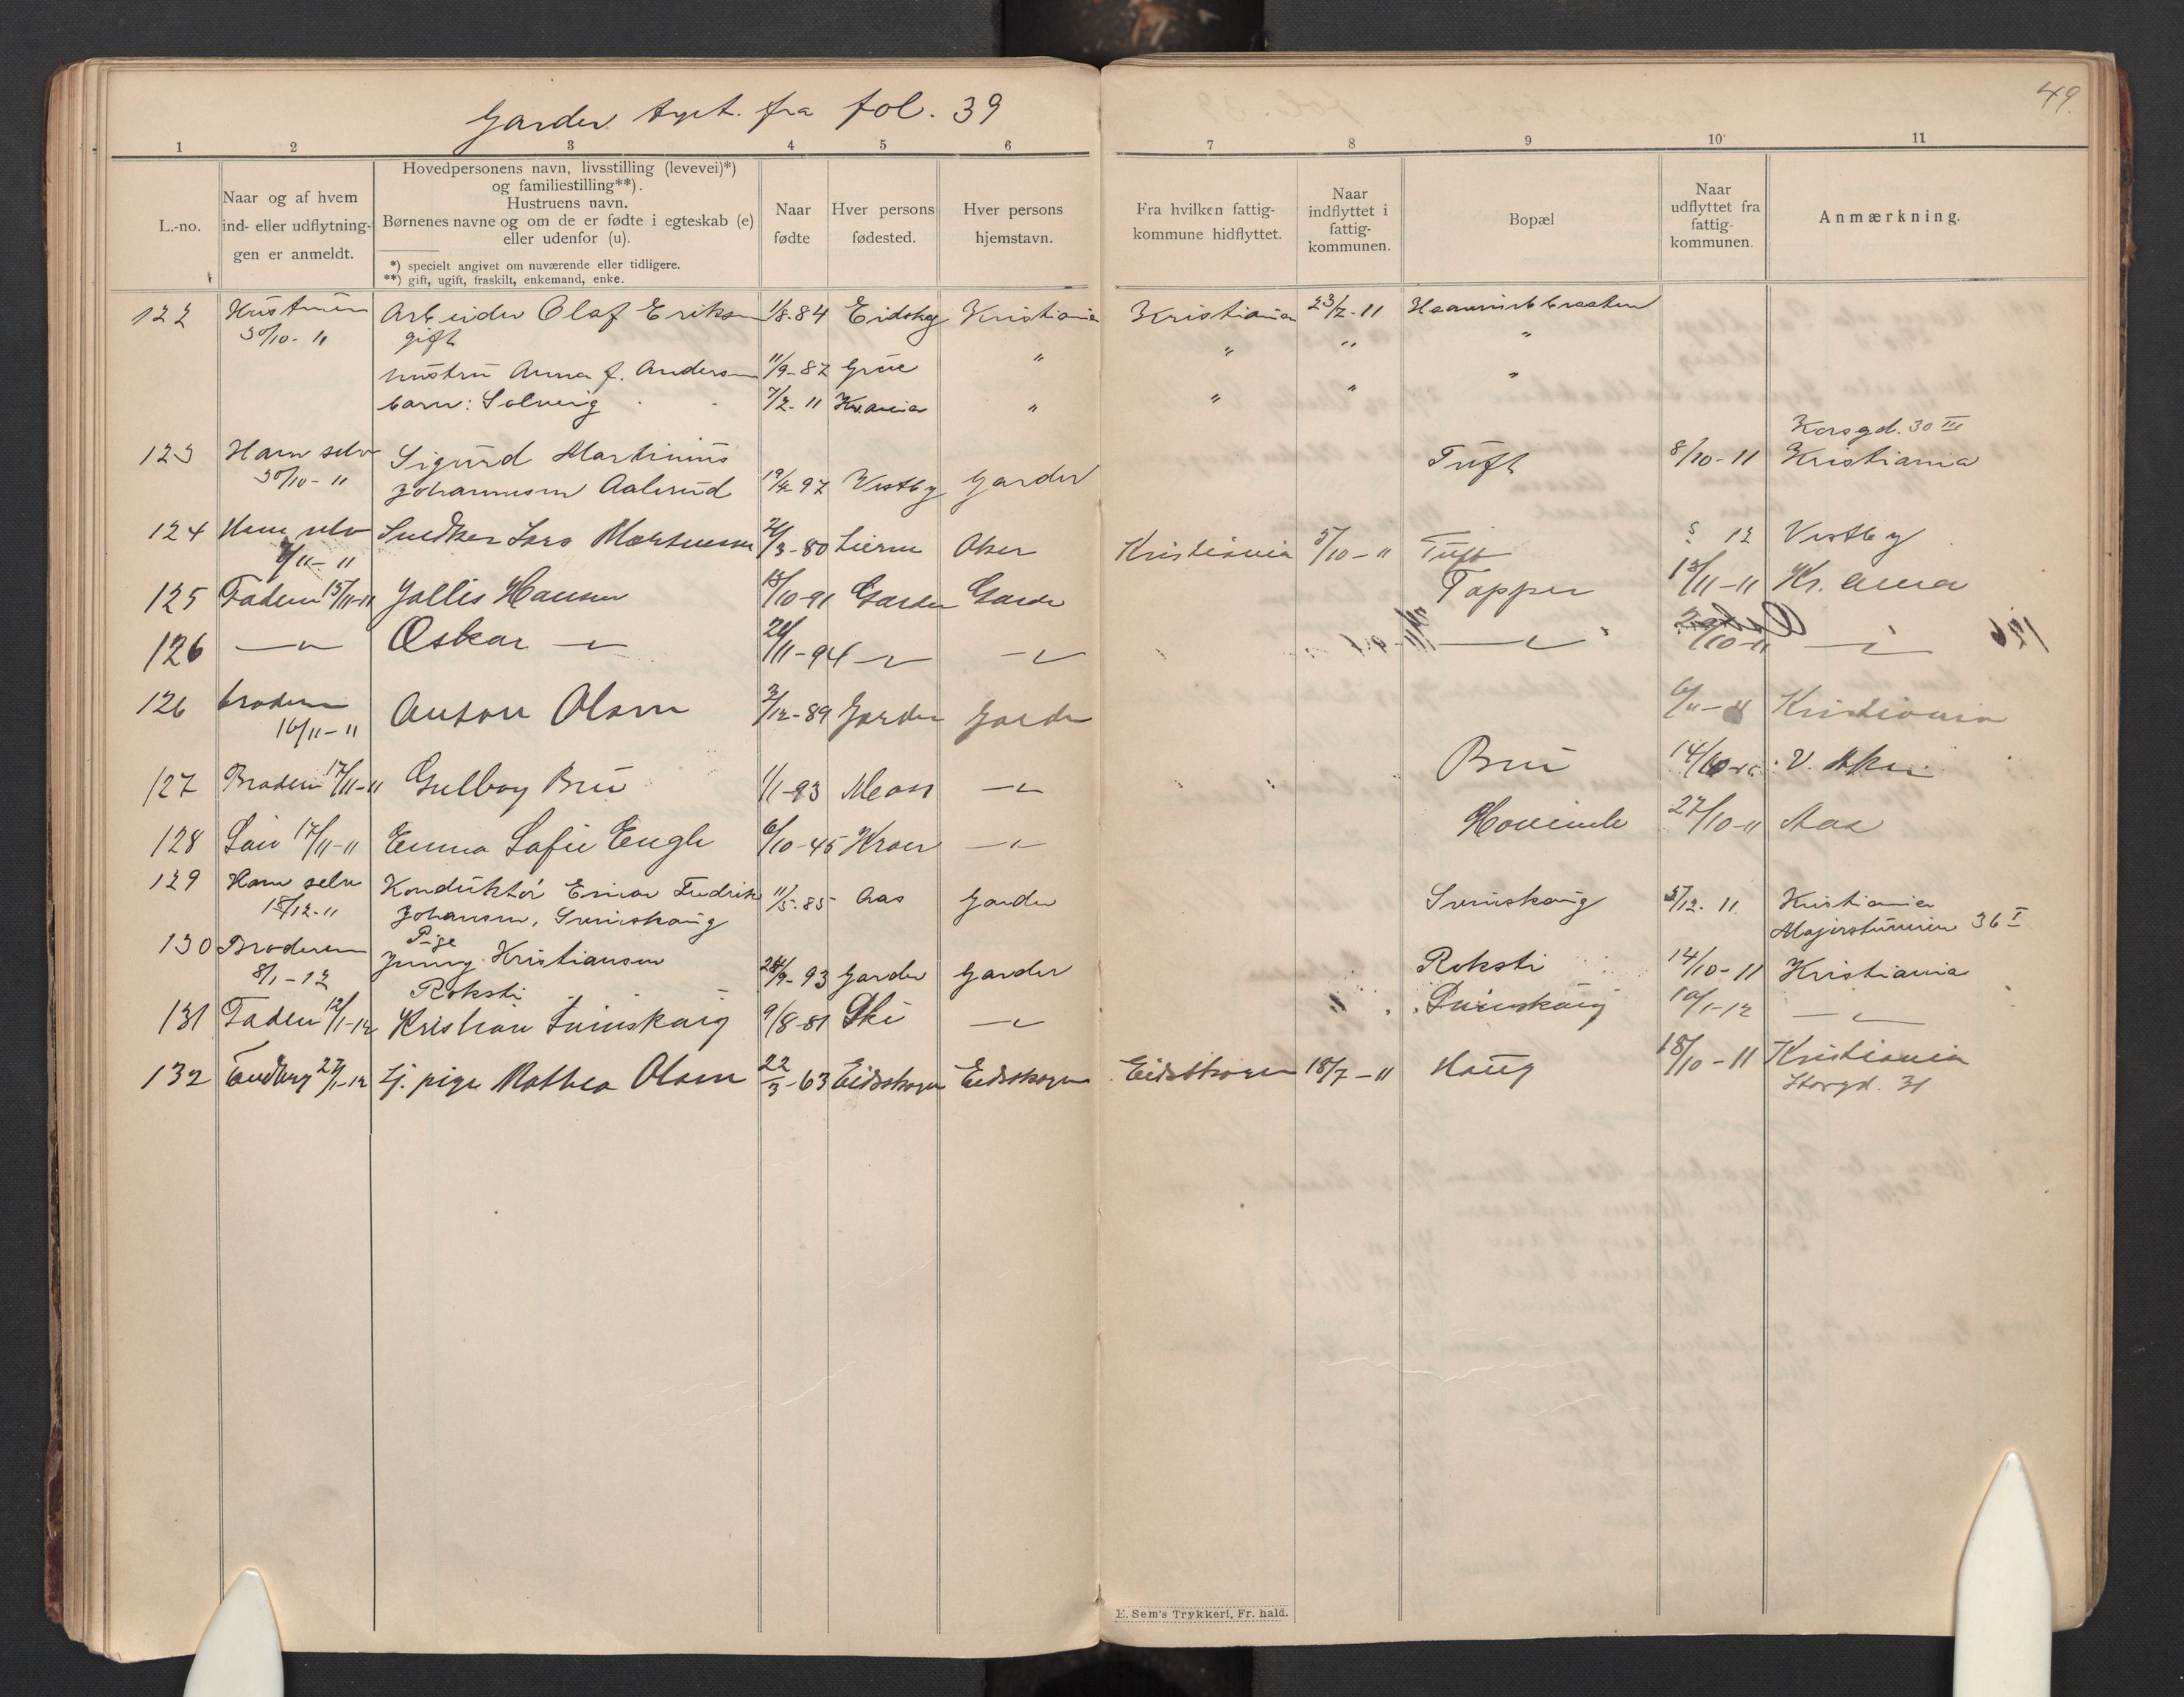 Garder fort. fra fol. 39
49
1 2 3 4 5 6 7 8 9 10 11
L.-no.
Naar og af hvem
ind- eller udflytnin-
gen er anmeldt.
Hovedpersonens navn, livsstilling (levevei)*)
og familiestilling**).
Hustruens navn.
Børnenes navne og om de er fødte i egteskab (e)
eller udenfor (u).
*) specielt angivet om nuværende eller tidligere.
**) gift, ugift, fraskilt, enkemand, enke.
Naar
fødte
Hver persons
fødested.
Hver persons
hjemstavn.
Fra hvilken fattig-
kommune hidflyttet.
Naar
indflyttet i
fattig-
kommunen.
Bopæl
Naar
udflyttet fra
fattig-
kommunen.
Anmærkning.
122 Hustruen Arbeider Olaf Eriksen 1/8-84 Eidskog Kristiania Kristiania 23/2-11
30/10-11 gift " " "
hustru Anna f. Andersen 11/9-82 Grue " "
barn: Solveig 7/2-11 Kr.ania " " "
Korsgd. 30 III
123 Ham selv Sigurd Martinius Tuft 8/10-11 Kristiania
30/10-11 Johannesen Aalerud 19/4 97 Vestby Garder
124 Ham selv Snedker Lars Martinsen 21/3-80 Lierne Aker Kristiania 5/10-11 Tuft 5 12 Vestby
7/11-11
125 Faderen 15/11-11 Jallis Hansen 18/10-91 Garder Garder Topper 13/11-11 Kr.ania
126 —"— Oskar —"— 26/11-94 —"— —"— —"— 29/10-11 —"—
126 broderen Anton Olsen 3/12-89 Garder Garder 6/11-11 Kristiania
16/11-11
127 Broderen 17/11-11 Gulbog Bru 1/1-93 Moss —"— Bru 14/10-11 V. Aker
128 17/11-11 Emma Sofie Engh 6/10-45 Kroer —"— 27/10-11 Aas
129 Ham selv Konduktør Einar Fredrik 11/5-85 Aas Garder Sunnskaug 5/12-11 Kristiania
18/12-11 Johansen, Sunnskaug Majorstuveien 36 I
130 Broderen Pige
Jenny Kristiansen 24/9-93 Garder Garder Roksti 14/10-11 Kristiania
8/1-12 Roksti
131 Faderen 12/1-12 Kristian Sunnskaug 9/8-81 Ski —"— Sunnskaug 10/1-12 —"—
132 27/1-12 Tj. pige Mathea Olsen 22/3-63 Eidsskogen Eidsskogen Eidsskogen 18/7-11 Haug 18/10-11 Kristiania
Storgd. 31
E. Sem's Trykkeri, Fr. hald.